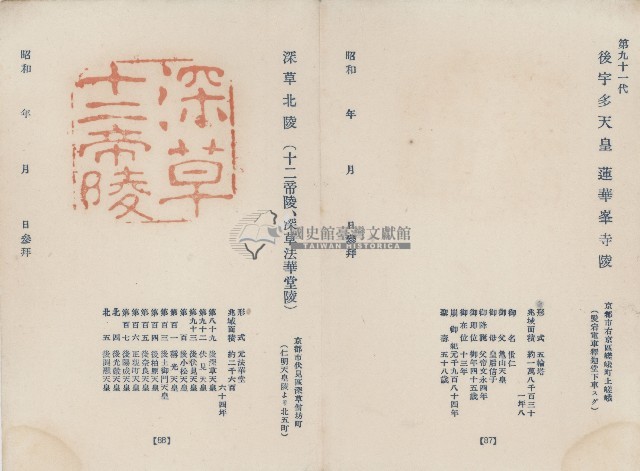 第九十一代
後宇多天皇 蓮華峯寺陵
京都市右京區嵯峨町上嵯峨
(愛宕電車釋迦堂下車スグ)
形 式 五輪塔
兆域面積 約一萬八千三十
一坪八
御 名 世仁
御 父 龜山天皇
御 母 皇后佶子
御降誕 父帝文永四年
御卽位 御年四十五歲
御在位 十三年
崩 御 紀元千九百八十四年
聖 壽 五十八歲
昭和 年 月 日參拜
【87】
深草北陵(十二帝陵、深草法華堂陵)
京都市伏見區深草坊町
(仁明天皇陵より北五町)
形 式 元法華堂
兆域面積 約二千六百
六十四坪
第八十九 後深草天皇
第九十二 伏見天皇
第九十三 後伏見天皇
第百 後小松天皇
第百一 稱光天皇
第百三 後土御門天皇
第百四 後柏原天皇
第百五 後奈良天皇
第百六 正親町天皇
第百七 後陽成天皇
北四 後光嚴天皇
北五 後圓融天皇
深草
十二帝陵
昭和 年 月 日參拜
【88】
國史館臺灣文獻館
TAIWAN HISTORICA